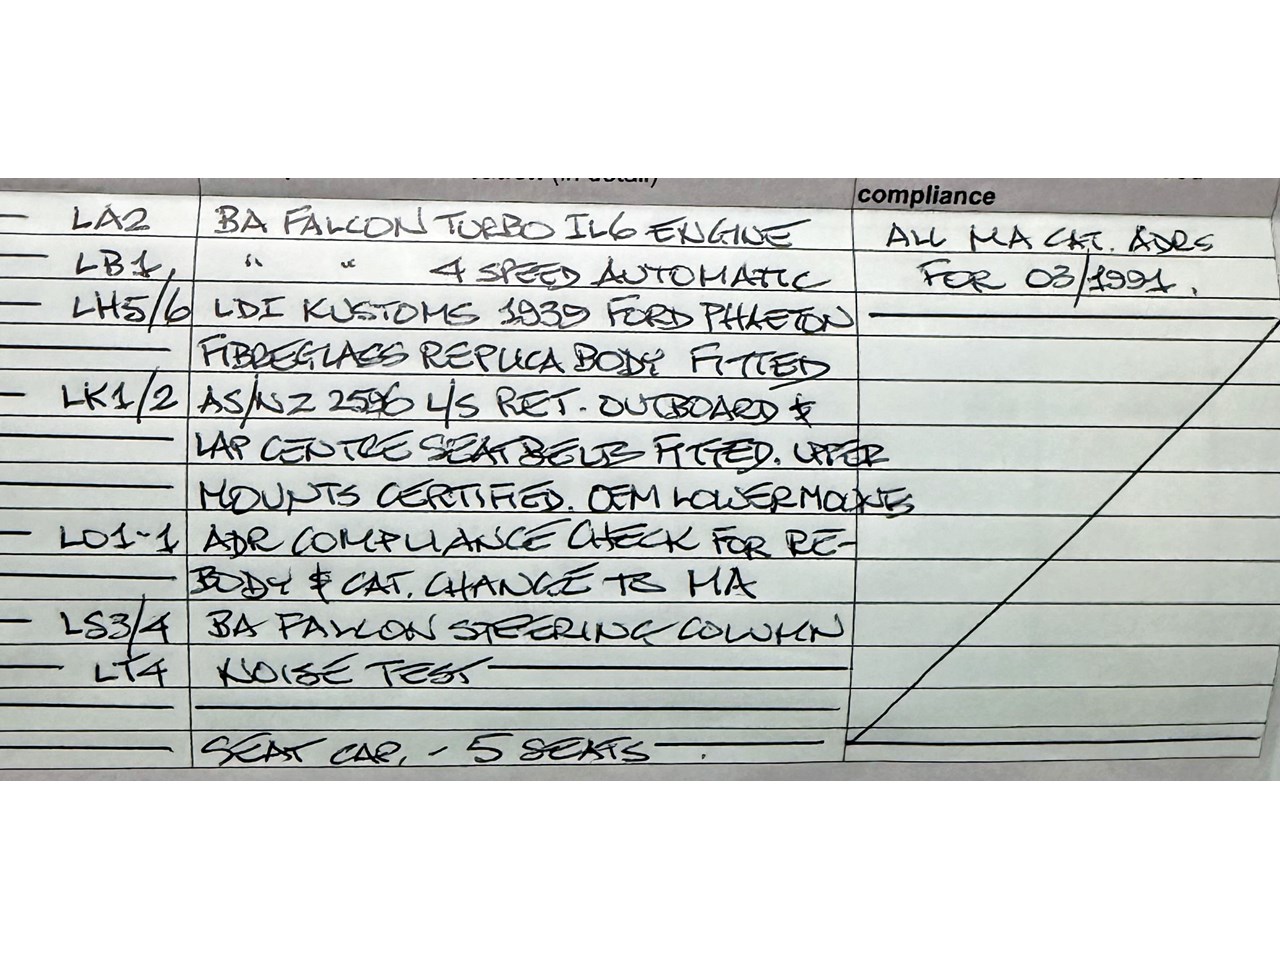 (in detail)
compliance
LA2 BA FALCON TURBO IL6 ENGINE ALL MA CAT. ADRS
LB1, " " 4 SPEED AUTOMATIC FOR 03/1991.
LH5/6 LDI KUSTOMS 1939 FORD PHAETON
FIBREGLASS REPLICA BODY FITTED
LK1/2 AS/NZ 2596 L/S RET. OUTBOARD &
LAP CENTRE SEATBELTS FITTED. UPPER
MOUNTS CERTIFIED. OEM LOWER MOUNTS
LO1-1 ADR COMPLIANCE CHECK FOR RE-
BODY & CAT. CHANGE TO MA
LS3/4 BA FALCON STEERING COLUMN
LT4 NOISE TEST
SEAT CAP. - 5 SEATS